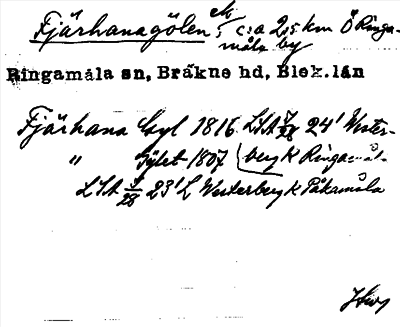 Fjärhanagölen ek, c:a 2,5 km Ö Ringa-
måla by
Ringamåla sn, Bräkne hd, Blek.län
Fjärhana Gyl 1816 LSA 24' Wester-
" Gylet 1807 berg K Ringamål-
LSA 28 23' L Westerberg K Påkamåla